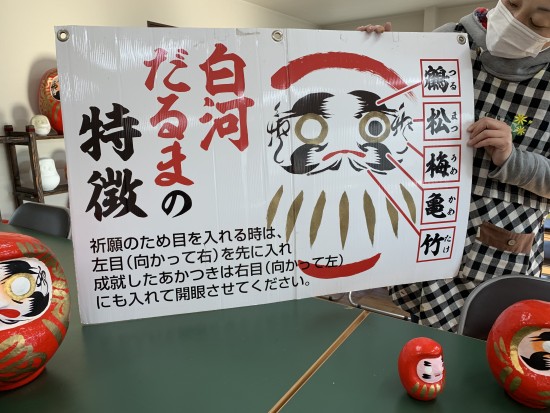 白河
だるまの
特徴
祈願のため目を入れる時は、
左目(向かって右)を先に入れ
成就したあかつきは右目(向かって左)
にも入れて開眼させてください。
鶴 つる
松 まつ
梅 うめ
亀 かめ
竹 たけ